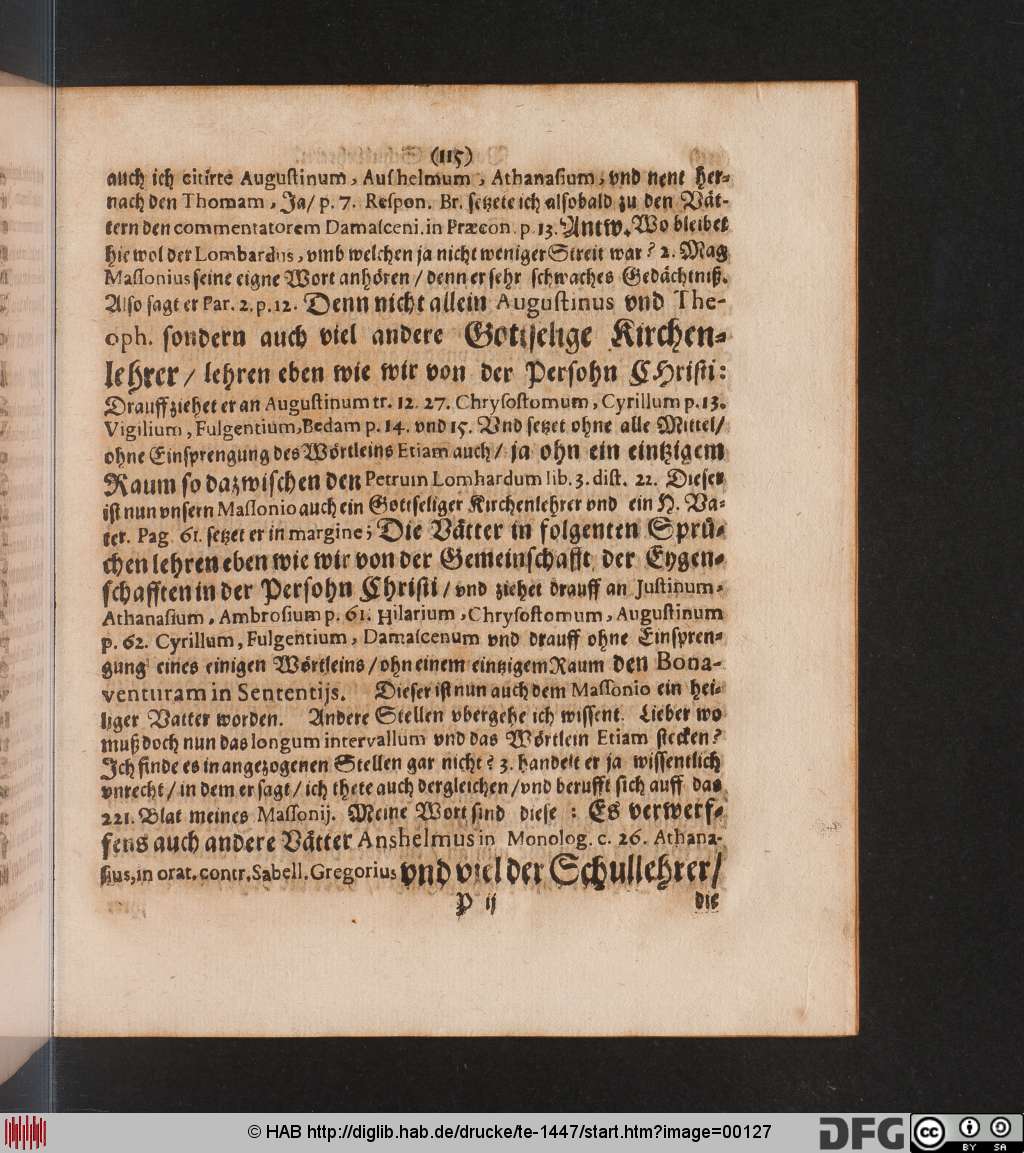 (115)
auch ich citirte Auguſtinum, Auſhelmum, Athanaſium, vnd nent her⸗
nach den Thomam, Ja/ p. 7. Reſpon. Br. ſetzete ich alſobald zu den Vaͤt⸗
tern den commentatorem Damaſceni. in Præcon. p. 13. Antw. Wo bleibet
hie wol der Lombardus, vmb welchen ja nicht weniger Streit war? 2. Mag
Maſſonius ſeine eigne Wort anhoͤren/ denn er ſehr ſchwaches Gedaͤchtniß.
Alſo ſagt er Par. 2. p. 12. Denn nicht allein Auguſtinus vnd The-
oph. ſondern auch viel andere Gottſelige Kirchen⸗
lehrer/ lehren eben wie wir von der Perſohn CHriſti:
Drauff ziehet er an Auguſtinum tr. 12. 27. Chryſoſtomum, Cyrillum p. 13.
Vigilium, Fulgentium, Bedam p. 14. vnd 15. Vnd ſetzet ohne alle Mittel/
ohne Einſprengung des Woͤrtleins Etiam auch/ ja ohn ein eintzigem
Raum ſo dazwiſchen den Petrum Lomhardum lib. 3. diſt. 22. Dieſer
iſt nun vnſern Maſſonio auch ein Gottſeliger Kirchenlehrer vnd ein H. Va⸗
ter. Pag. 61. ſetzet er in margine; Die Vaͤtter in folgenten Spruͤ⸗
chen lehren eben wie wir von der Gemeinſchafft der Eygen⸗
ſchafften in der Perſohn Chriſti/ vnd ziehet drauff an Juſtinum,
Athanaſium, Ambroſium p. 61. Hilarium, Chryſoſtomum, Auguſtinum
p. 62. Cyrillum, Fulgentium, Damaſcenum vnd drauff ohne Einſpren⸗
gung eines einigen Woͤrtleins/ ohn einem eintzigem Raum den Bona-
venturam in Sententijs. Dieſer iſt nun auch dem Maſſonio ein hei⸗
liger Vatter worden. Andere Stellen vbergehe ich wiſſent. Lieber wo
muß doch nun das longum intervallum vnd das Woͤrtlein Etiam ſtecken?
Ich finde es in angezogenen Stellen gar nicht? 3. handelt er ja wiſſentlich
vnrecht/ in dem er ſagt/ ich thete auch dergleichen/ vnd berufft ſich auff das
221. Blat meines Maſſonij. Meine Wort ſind dieſe: Es verwerf⸗
fens auch andere Vaͤtter Anshelmus in Monolog. c. 26. Athana-
ſius, in orat. contr. Sabell. Gregorius vnd viel der Schullehrer/
P ij die
© HAB http://diglib.hab.de/drucke/te-1447/start.htm?image=00127
DFG cc BY SA